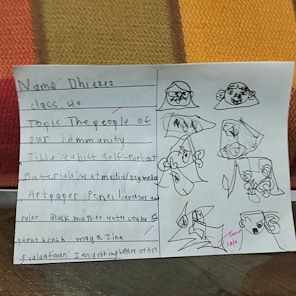 Name: Dhieren
class: 4e
Topic The people of
our community
Title: cubist Self-Portrait
Materials: wet media/Dry media
Art paper Pencil eraser and
ruler: Black marker water color
paint brush: magazine
Evaluation: I am getting better at Art